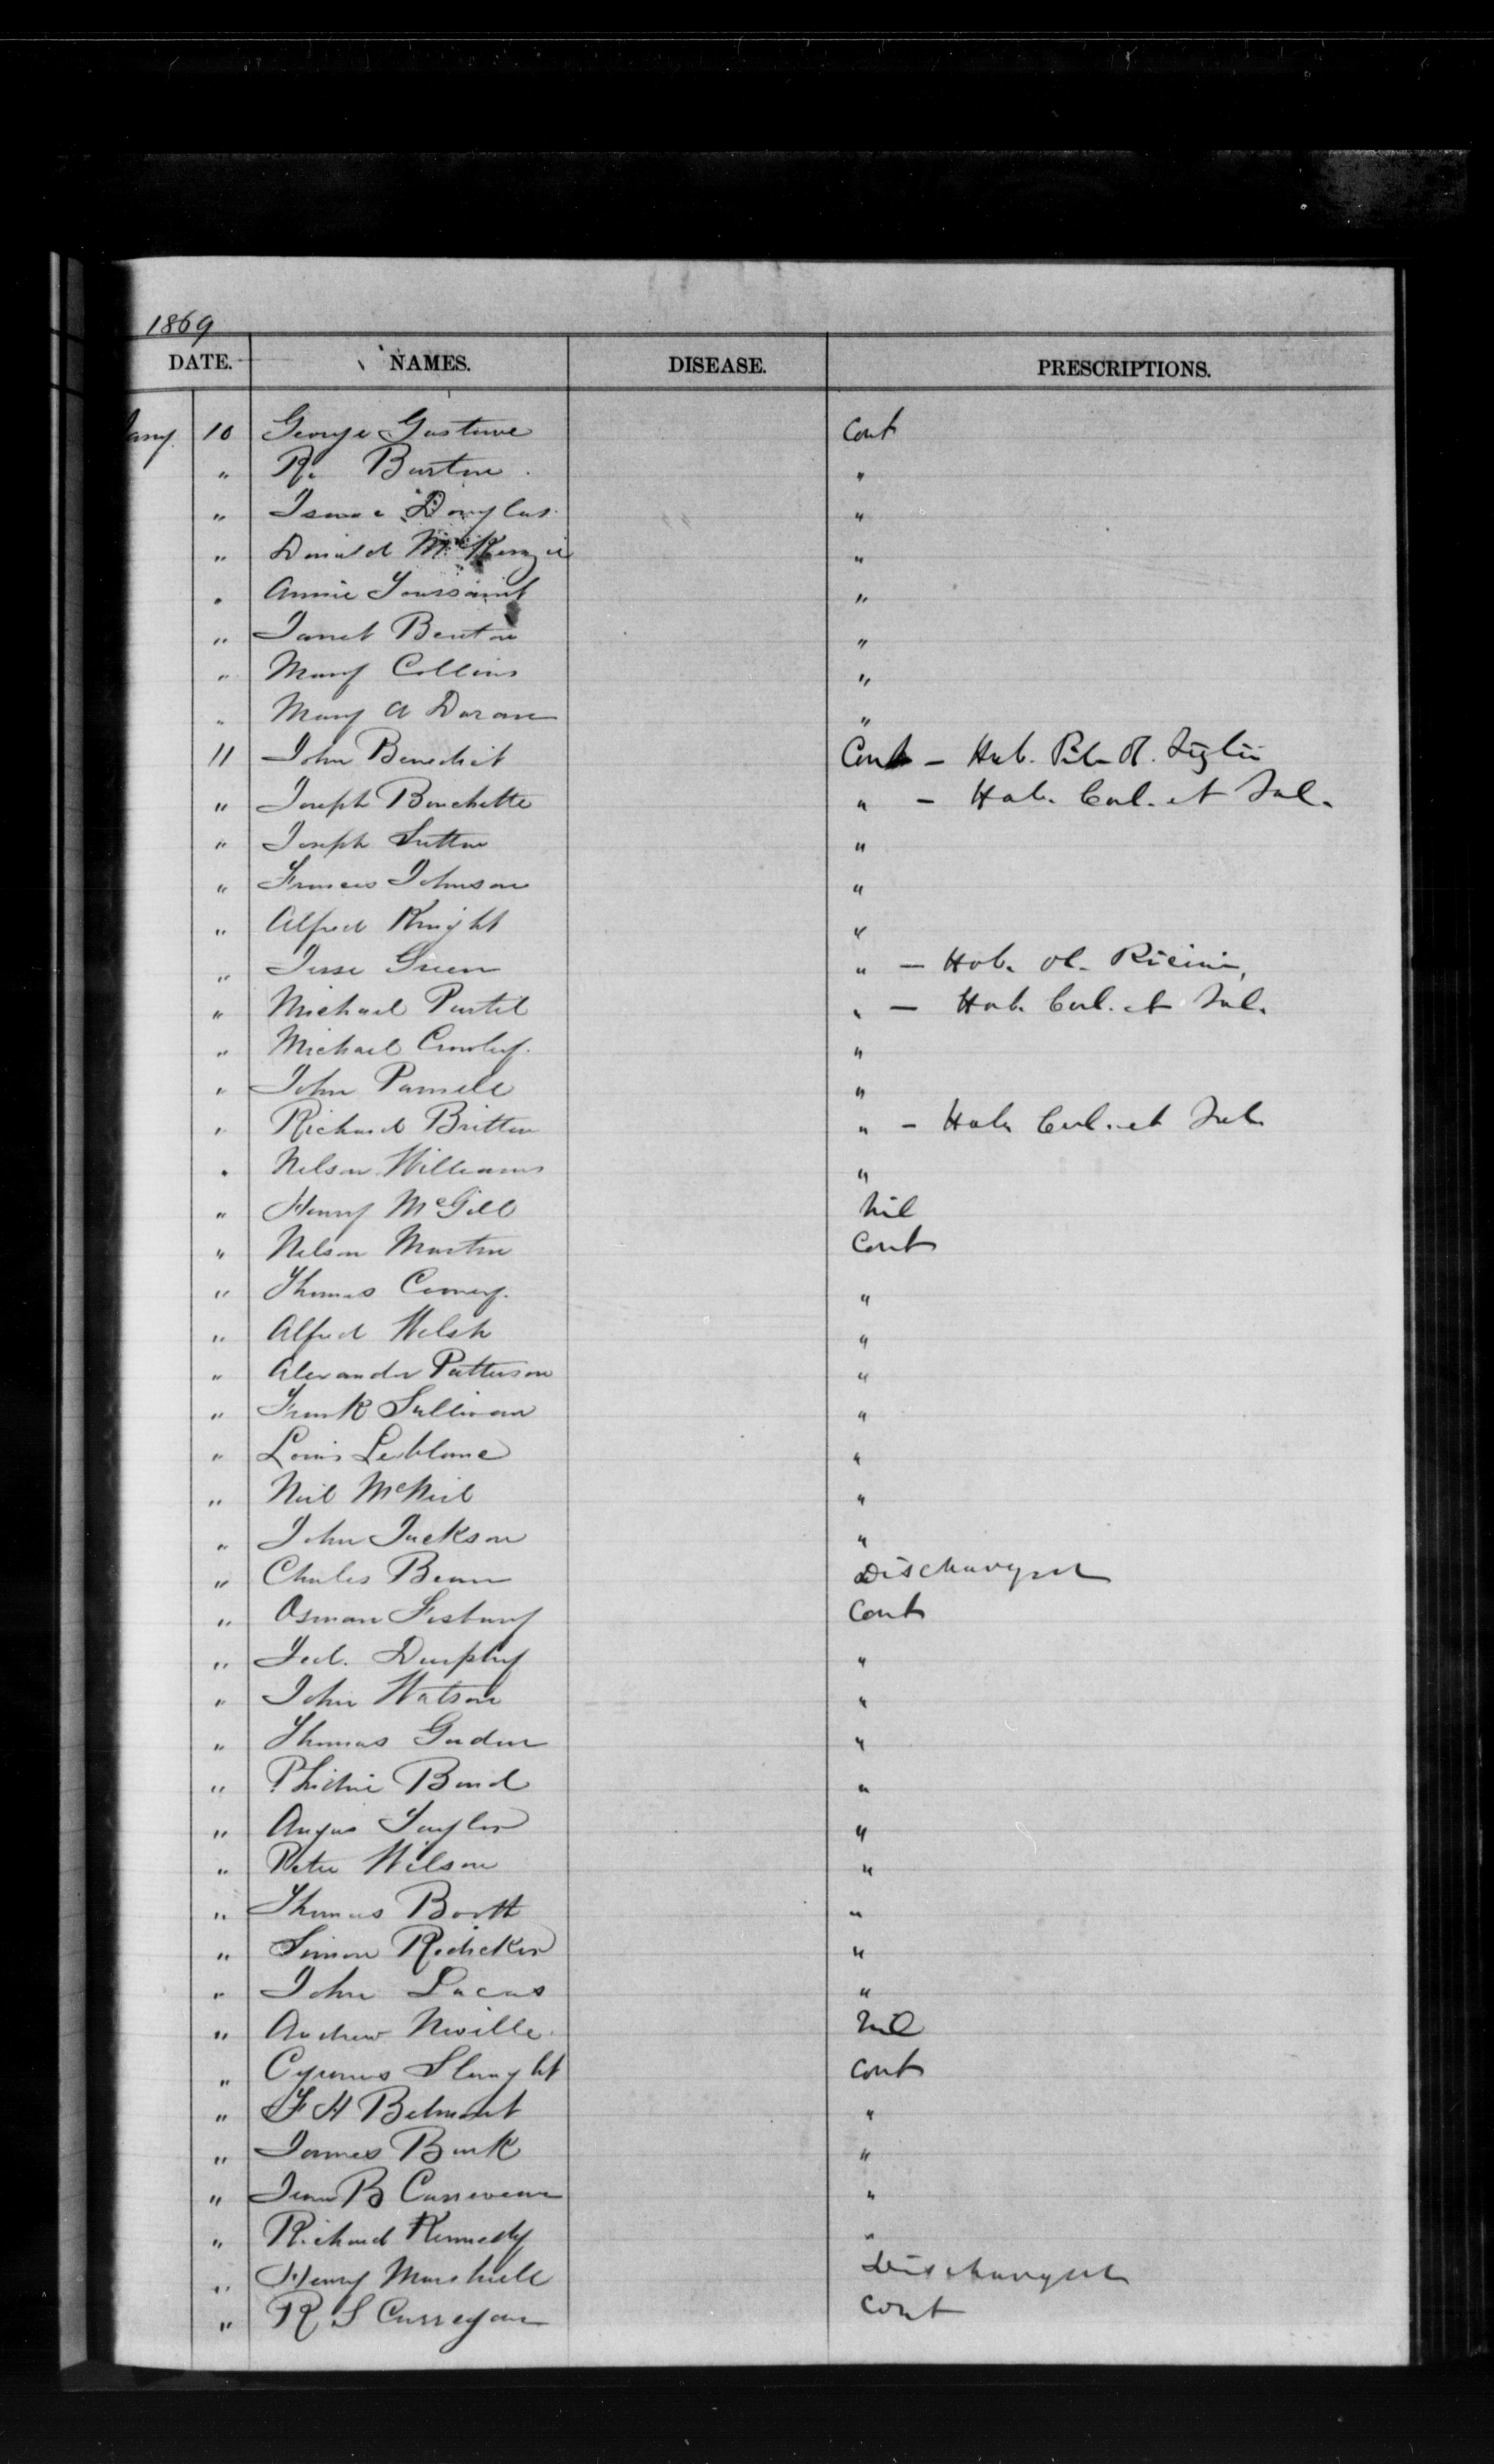 1869
DATE. NAMES. DISEASE. PRESCRIPTIONS.
Jany. 10 George Gustave Cont
" R. Burton "
" Isaac Douglas "
" Donald McKenzie "
" Annie Toussaint "
" Janet Benton "
" Mary Collins "
" Mary A Doran "
11 John Benedict Cont - Hab. Pil. Ol. Tiglii
" Joseph Bouchette " - Hab. Cal. et Jal.
" Joseph Sutton "
" Francis Johnson "
" Alfred Knight "
" Jesse Green " - Hab. Ol. Ricini,
" Michael " - Hab. Cal. et Jal.
" Michael Crowley. "
" John Parnell "
" Richard Britton " - Hab Cal. et Jal.
" Nelson Williams "
" Henry McGill Nil
" Nelson Martin Cont
" Thomas "
" Alfred Welsh "
" Alexander Patterson "
" Frank Sullivan "
" Louis Leblanc "
" Neil McNeil "
" John Jackson "
" Charles Bean Discharged
" Osman Cont
" Jed. Durphy "
" John Watson "
" Thomas "
" Bond "
" Angus Taylor "
" Peter Wilson "
" Thomas Booth "
" Simon "
" John Lucas "
" Andrew Neville Nil
" Cyrenus Slaught Cont
" F H Belmont "
" James Burk "
" Jean B "
" Richard Kennedy "
" Henry Marshall Discharged
" R S Corregan Cont